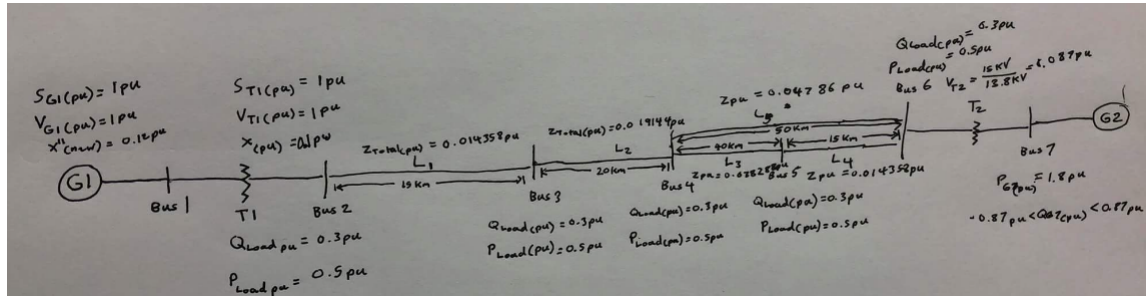 S_G1(pu) = 1pu
V_G1(pu) = 1pu
X"(new) = 0.12pu
G1
Bus 1
S_T1(pu) = 1pu
V_T1(pu) = 1pu
X(pu) = 0.1pu
T1
Bus 2
Q_Load pu = 0.3pu
P_Load pu = 0.5pu
Z_Total(pu) = 0.014358pu
L1
15 Km
Bus 3
Q_Load(pu) = 0.3pu
P_Load(pu) = 0.5pu
Z_Total(pu) = 0.019144pu
L2
20 Km
Bus 4
Q_Load(pu) = 0.3pu
P_Load(pu) = 0.5pu
Z pu = 0.04786 pu
50 Km
40 Km
L3
15 Km
L4
Bus 5
Z pu = 0.014358pu
Q_Load(pu) = 0.3pu
P_Load(pu) = 0.5pu
Q_Load(pu) = 0.3pu
P_Load(pu) = 0.5pu
Bus 6
V_T2 = 15KV / 13.8KV = 1.087pu
T2
Bus 7
G2
P_G2(pu) = 1.8pu
-0.87pu < Q_G2(pu) < 0.87pu